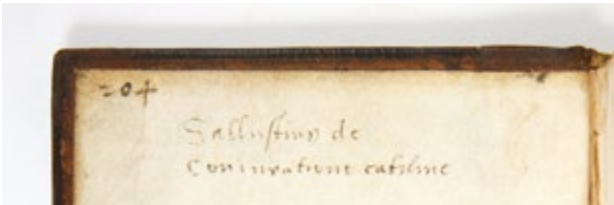 204
Sallustius de
Coniuratione catiline